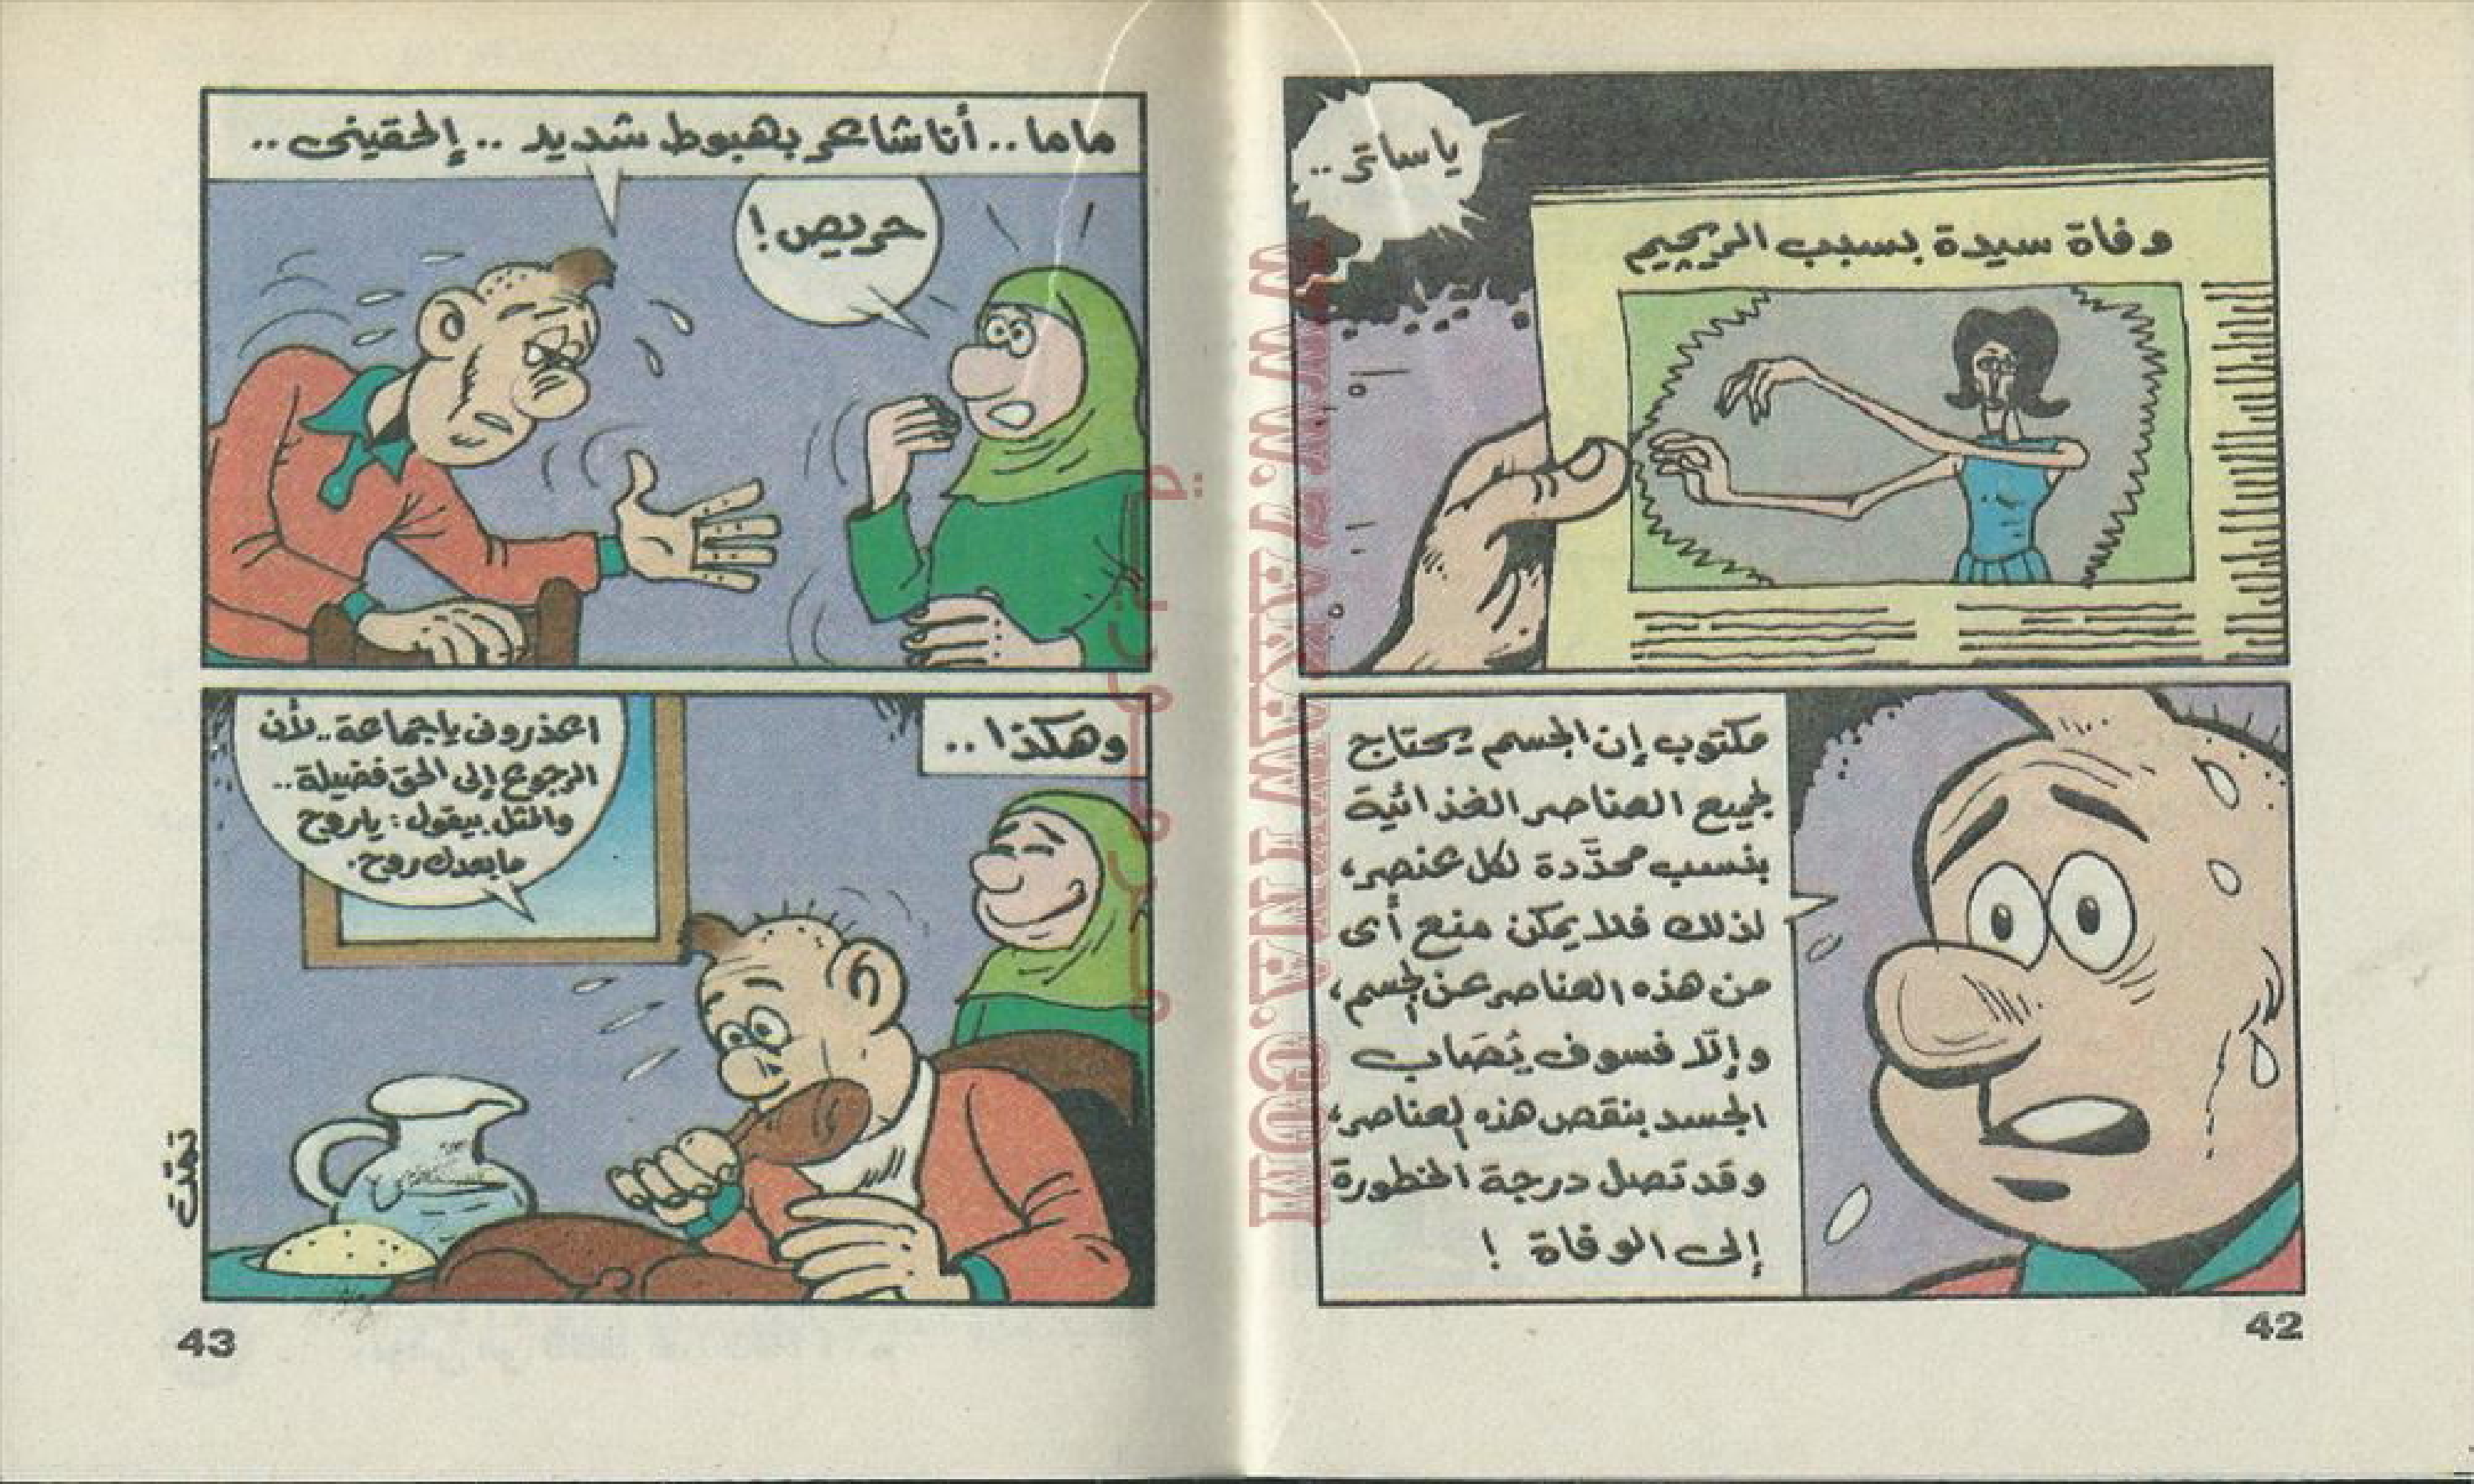 يا ساتر ..
وفاة سيدة بسبب الريچيم
مكتوب إن الجسم يحتاج
لجميع العناصر الغذائية
بنسب محدَّدة لكل عنصر،
لذلك فلا يمكن منع أى
من هذه العناصر عن الجسم،
وإلّا فسوف يُصَاب
الجسد بنقص هذه العناصر،
وقد تصل درجة الخطورة
إلى الوفاة !
42
ماما .. أنا شاعر بهبوط شديد .. إلحقينى ..
حريص !
وهكذا ..
اعذرونى يا جماعة .. لأن
الرجوع إلى الحق فضيلة ..
والمثل بيقول : يا روح
ما بعدك روح .
تمت
43